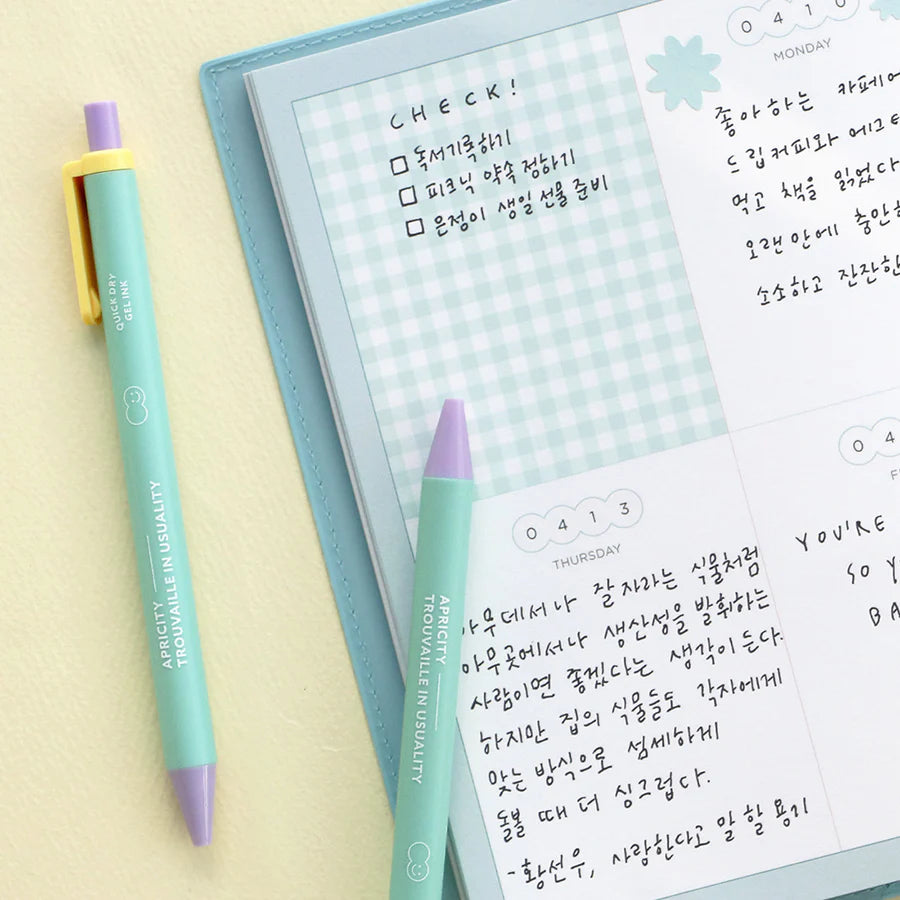 CHECK!
독서기록하기
피크닉 약속 정하기
은정이 생일 선물 준비
0410
MONDAY
좋아하는 카페에
드립커피와 에그
먹고 책을 읽었다
오랜만에 충만
소소하고 잔잔한
0413
THURSDAY
아무데서나 잘 자라는 식물처럼
아무곳에서나 생산성을 발휘하는
사람이면 좋겠다는 생각이 든다.
하지만 집의 식물들도 각자에게
맞는 방식으로 섬세하게
돌볼 때 더 싱그럽다.
-황선우, 사랑한다고 말할 용기
04
F
YOU'RE
SO Y
BA
QUICK DRY
GEL INK
APRICITY
TROUVAILLE IN USUALITY
APRICITY
TROUVAILLE IN USUALITY